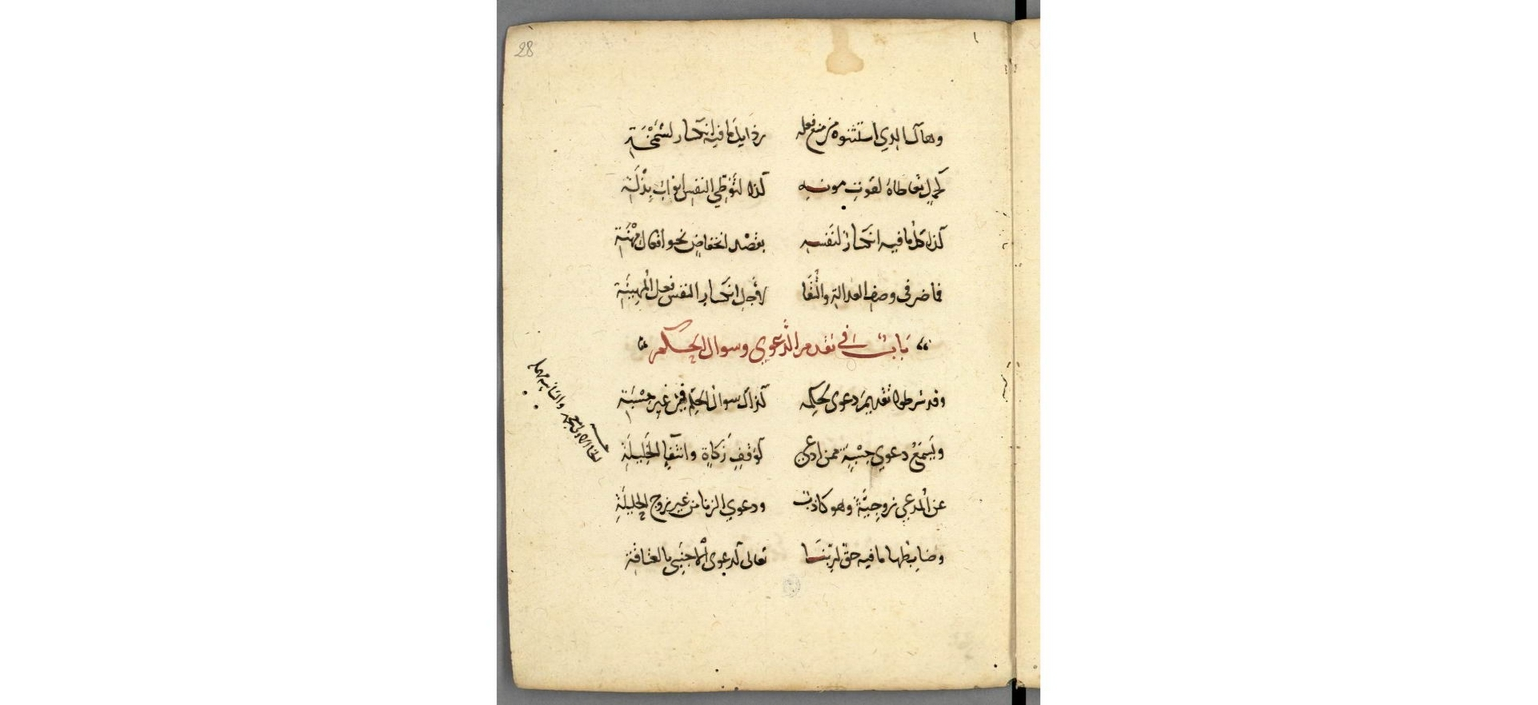 28
وهاك الذي استثنوه من منع فعله رذايل ما فيه انكسار لشمخة
كحمل تعاطاه لقوت مونه كذا لتوطي النفس ابواب بذلة
كذا كل ما فيه انكسار لنفسه بقصد انخفاض نحو افعال مهنة
فما ضر في وصف العدالة والتقا لاجل انكسار النفس فعل المهينة
باب في تقدم الدعوي وسوال الحكم
وقد شرطوا تقديم دعوى لحكمه كذاك سوال الحكم في غير حسبة
ويسمع دعوي حسبة ممن ادعى كوقف زكاة وانتفا الخليلة
عن المدعي زوجية وهو كاذب ودعوي الزنا من غير زوج الحليلة
وضابطها ما فيه حق لربنا تعالى كدعوى الاجنبي بالعتاقة
الخا الاولى معجمة والثانيه مهملة